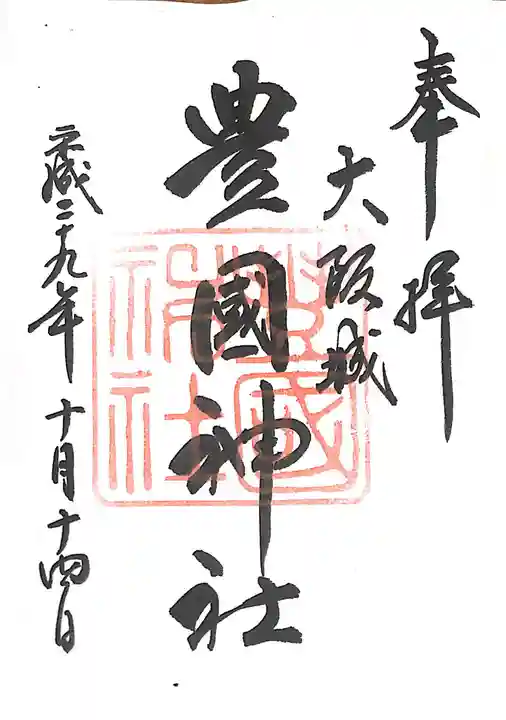 奉拝
大阪城
豊國神社
平成二十九年十月十四日
豊國神社